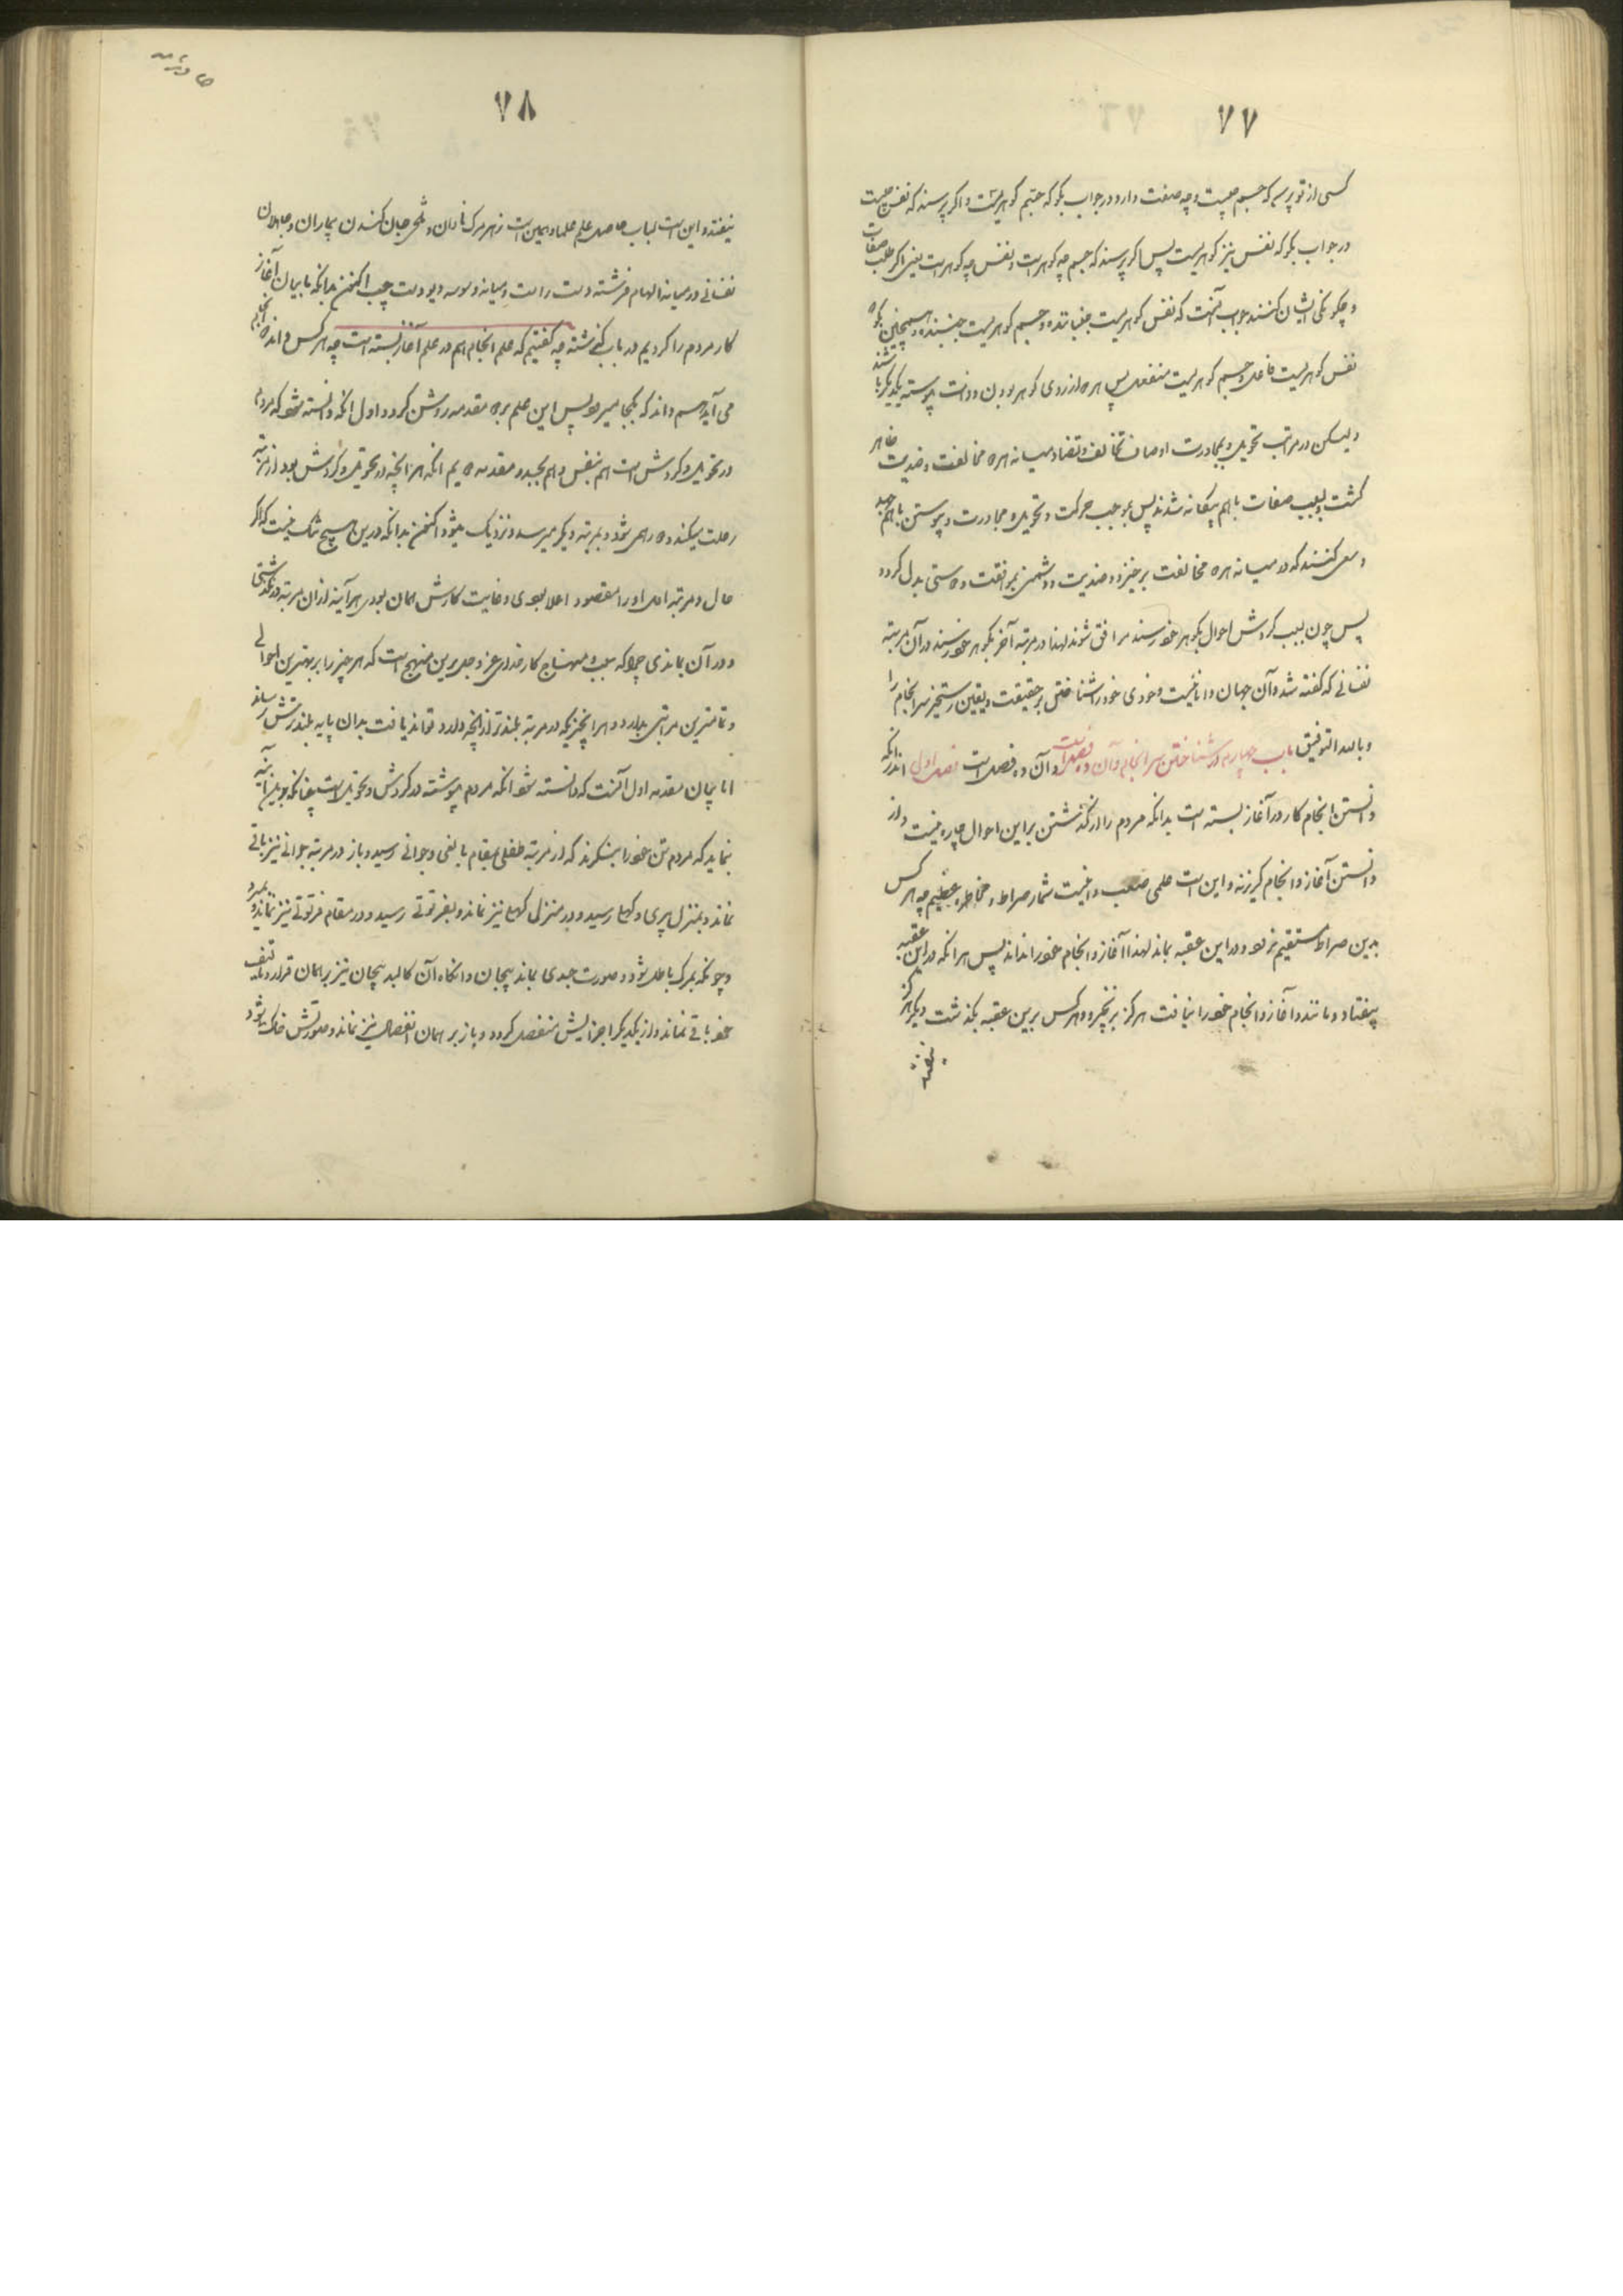 ۷۷
کسی از تو پرسد که جسم چیست و چه صفت دارد در جواب بگو که جسم گوهریست و اگر پرسند که نفس چیست
در جواب بگو که نفس نیز گوهریست پس اگر پرسند که جسم چه گوهر است و نفس چه گوهر است یعنی اگر طلب صفات
و چگونگی ایشان کنند جواب آنست که نفس گوهریست جنباننده و جسم گوهریست جنبنده و همچنین بگو که
نفس گوهریست فاعل و جسم گوهریست منفعل پس هر دو از روی گوهر بودن و ذات پیوسته یکدیگر باشند
ولیکن در مراتب تحویل و مجاورت اوصاف تخالف و تضاد میانه هر دو مخالفت و ضدیت ظاهر
گشت و بسبب صفات باهم بیگانه شدند پس بموجب حرکت و تحویل و مجاورت و پیوستن باهم جد
و سعی کنند که در میانه هر دو مخالفت برخیزد و ضدیت و دشمنی بموافقت و دوستی بدل گردد
پس چون بسبب گردش احوال بگوهر خود رسند موافق شوند لهذا در مرتبه آخر بگوهر خود رسند در آن مرتبه
نفسانی که گفته شد و آن جهان دانائیست و خودی خود را شناختن بر حقیقت و یقین رستخیز سرانجام را
و بالله التوفیق باب چهارم در شناختن سرانجام و آن ده فصل است و آن ده فصل است فصل اول اندر آنکه
دانستن انجام کار در آغاز بسته است بدانکه مردم را از گذشتن بر این احوال چاره نیست و از
دانستن آغاز و انجام گریز نه و این است علمی صعب و اینست شمار صراط و مخاطره عظیم چه هر کس
بدین صراط مستقیم نرود و در این عقبه بماند لهذا آغاز و انجام خود را نداند پس هر آنکه در این عقبه
بیفتاد و ماند و آغاز و انجام خود را نیافت هرگز برنخیزد و هر کس برین عقبه بگذشت دیگر هرگز
نیفتد
۷۸
نیفتد و این است لباب حاصل علم علما و همین است زهر مرگ نادان و تلخی جان کندن بیماران و جاهلان
نفسانی در میانه الهام فرشته دست راست و میانه وسوسه دیو دست چپ اکنون بدانکه ما بیان آغاز
کار مردم را کردیم در باب گذشته چه گفتیم که علم انجام هم در علم آغاز بسته است چه هر کس داند از کجا
می‌آید هم داند که بکجا میرود پس این علم بدو مقدمه روشن گردد اول آنکه دانسته شود که مردم
در تحویل و گردش است هم بنفس و هم بجسد و مقدمه دویم آنکه هر آنچه در تحویل و گردش بود از مرتبه
رحلت میکند و دور همی شود و بمرتبه دیگر میرسد و نزدیک میشود اکنون بدانکه درین هیچ شک نیست که اگر
حال و مرتبه اول او را مقصود اعلا بودی و غایت کارش همان بودی هر آینه از آن مرتبه در نگذشتی
و در آن بماندی چرا که منهاج کار خدای عز و جل برین منهج است که هر چیز را بر بهترین احوالی
و تمامترین مراتبی بدارد و هر آنچیزیکه در مرتبه بلندتر از آنچه دارد تواند یافت بدان پایه بلندترش رساند
اما بیان مقدمه اول آنست که دانسته شود آنکه مردم پیوسته در گردش و تحویل است چنانکه هر آینه
بنماید که مردم تن خود را بنگرند که از مرتبه طفلی بمقام بالغی و جوانی رسید و باز در مرتبه جوانی نیز باقی
نماند و بمنزل پیری و کهلی رسید و در منزل کهلی نیز نماند و بفرتوتی رسید و در مقام فرتوتی نیز نماند و بمیرد
و چونکه بمرگ باطل شود و صورت جسدی بماند بیجان و آنگاه آن کالبد بیجان نیز بر همان قرار و تألیف
خود باقی نماند و از یکدیگر اجزایش منفصل گردد و باز بر همان انفصال نیز نماند و صورتش خاک شود